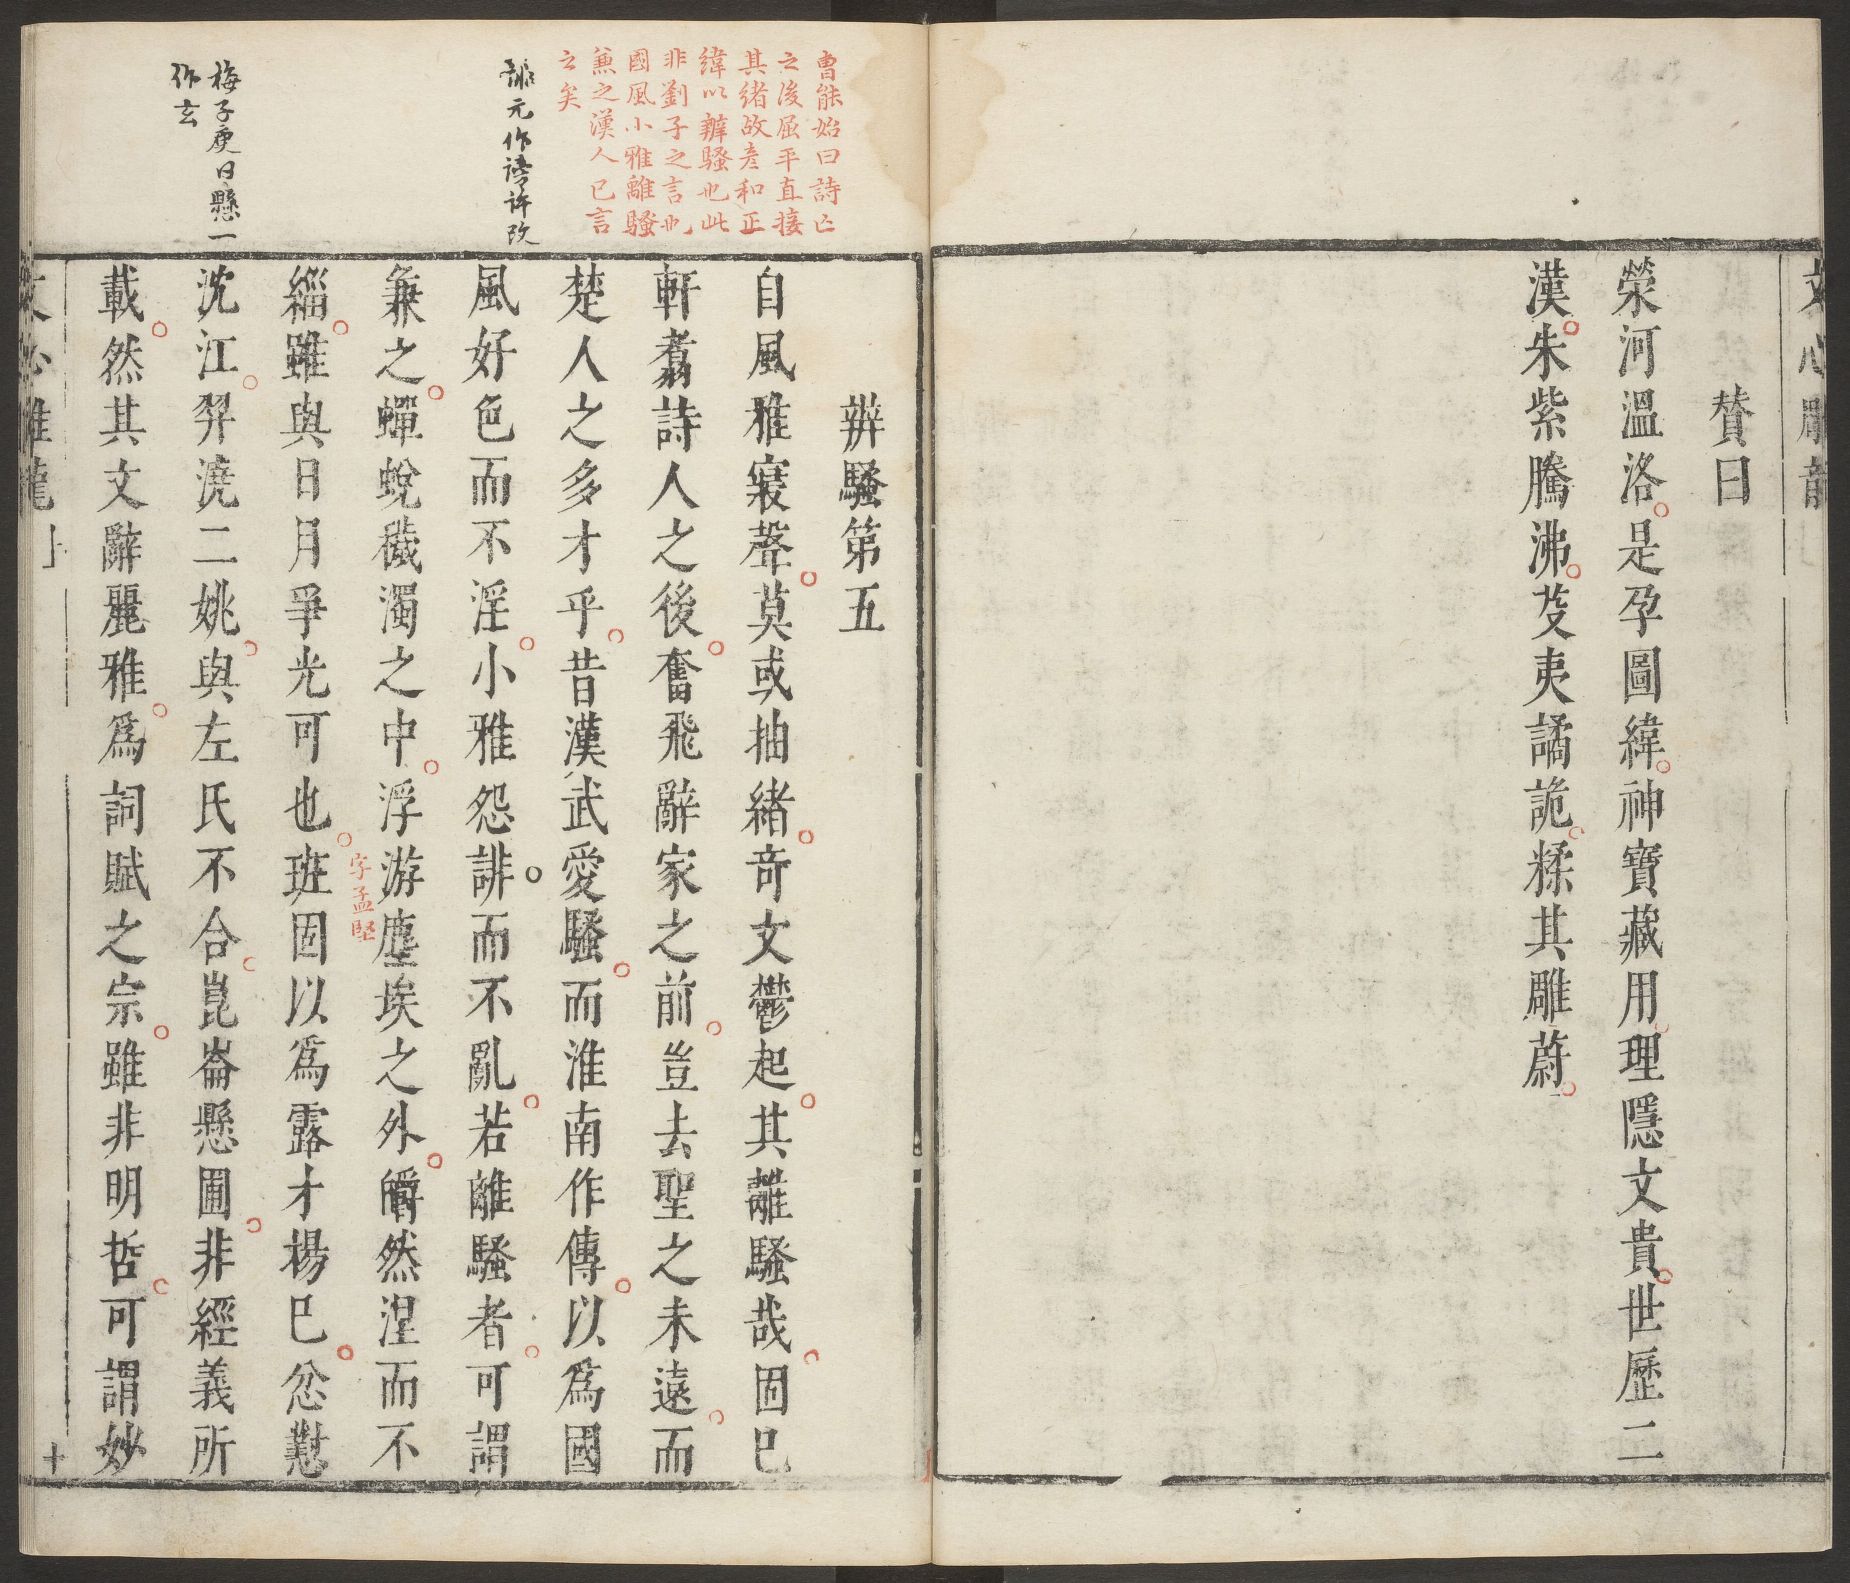 文心雕龍
贊曰
榮河溫洛是孕圖緯神寶藏用理隱文貴世歷二
漢朱紫騰沸芟夷譎詭糅其雕蔚
曹能始曰詩亡
之後屈平直接
其緒故彥和正
緯以辨騷也此
非劉子之言也
國風小雅離騷
兼之漢人已言
之矣
誹元作謗許改
梅子庚曰懸一
作玄
辨騷第五
自風雅寢聲莫或抽緒奇文鬱起其離騷哉固已
軒翥詩人之後奮飛辭家之前豈去聖之未遠而
楚人之多才乎昔漢武愛騷而淮南作傳以爲國
風好色而不淫小雅怨誹而不亂若離騷者可謂
兼之蟬蛻穢濁之中浮游塵埃之外皭然涅而不
緇雖與日月爭光可也班固以爲露才楊已忿懟
字孟堅
沈江羿澆二姚與左氏不合崑崙懸圃非經義所
載然其文辭麗雅爲詞賦之宗雖非明哲可謂妙
文心雕龍 上
十